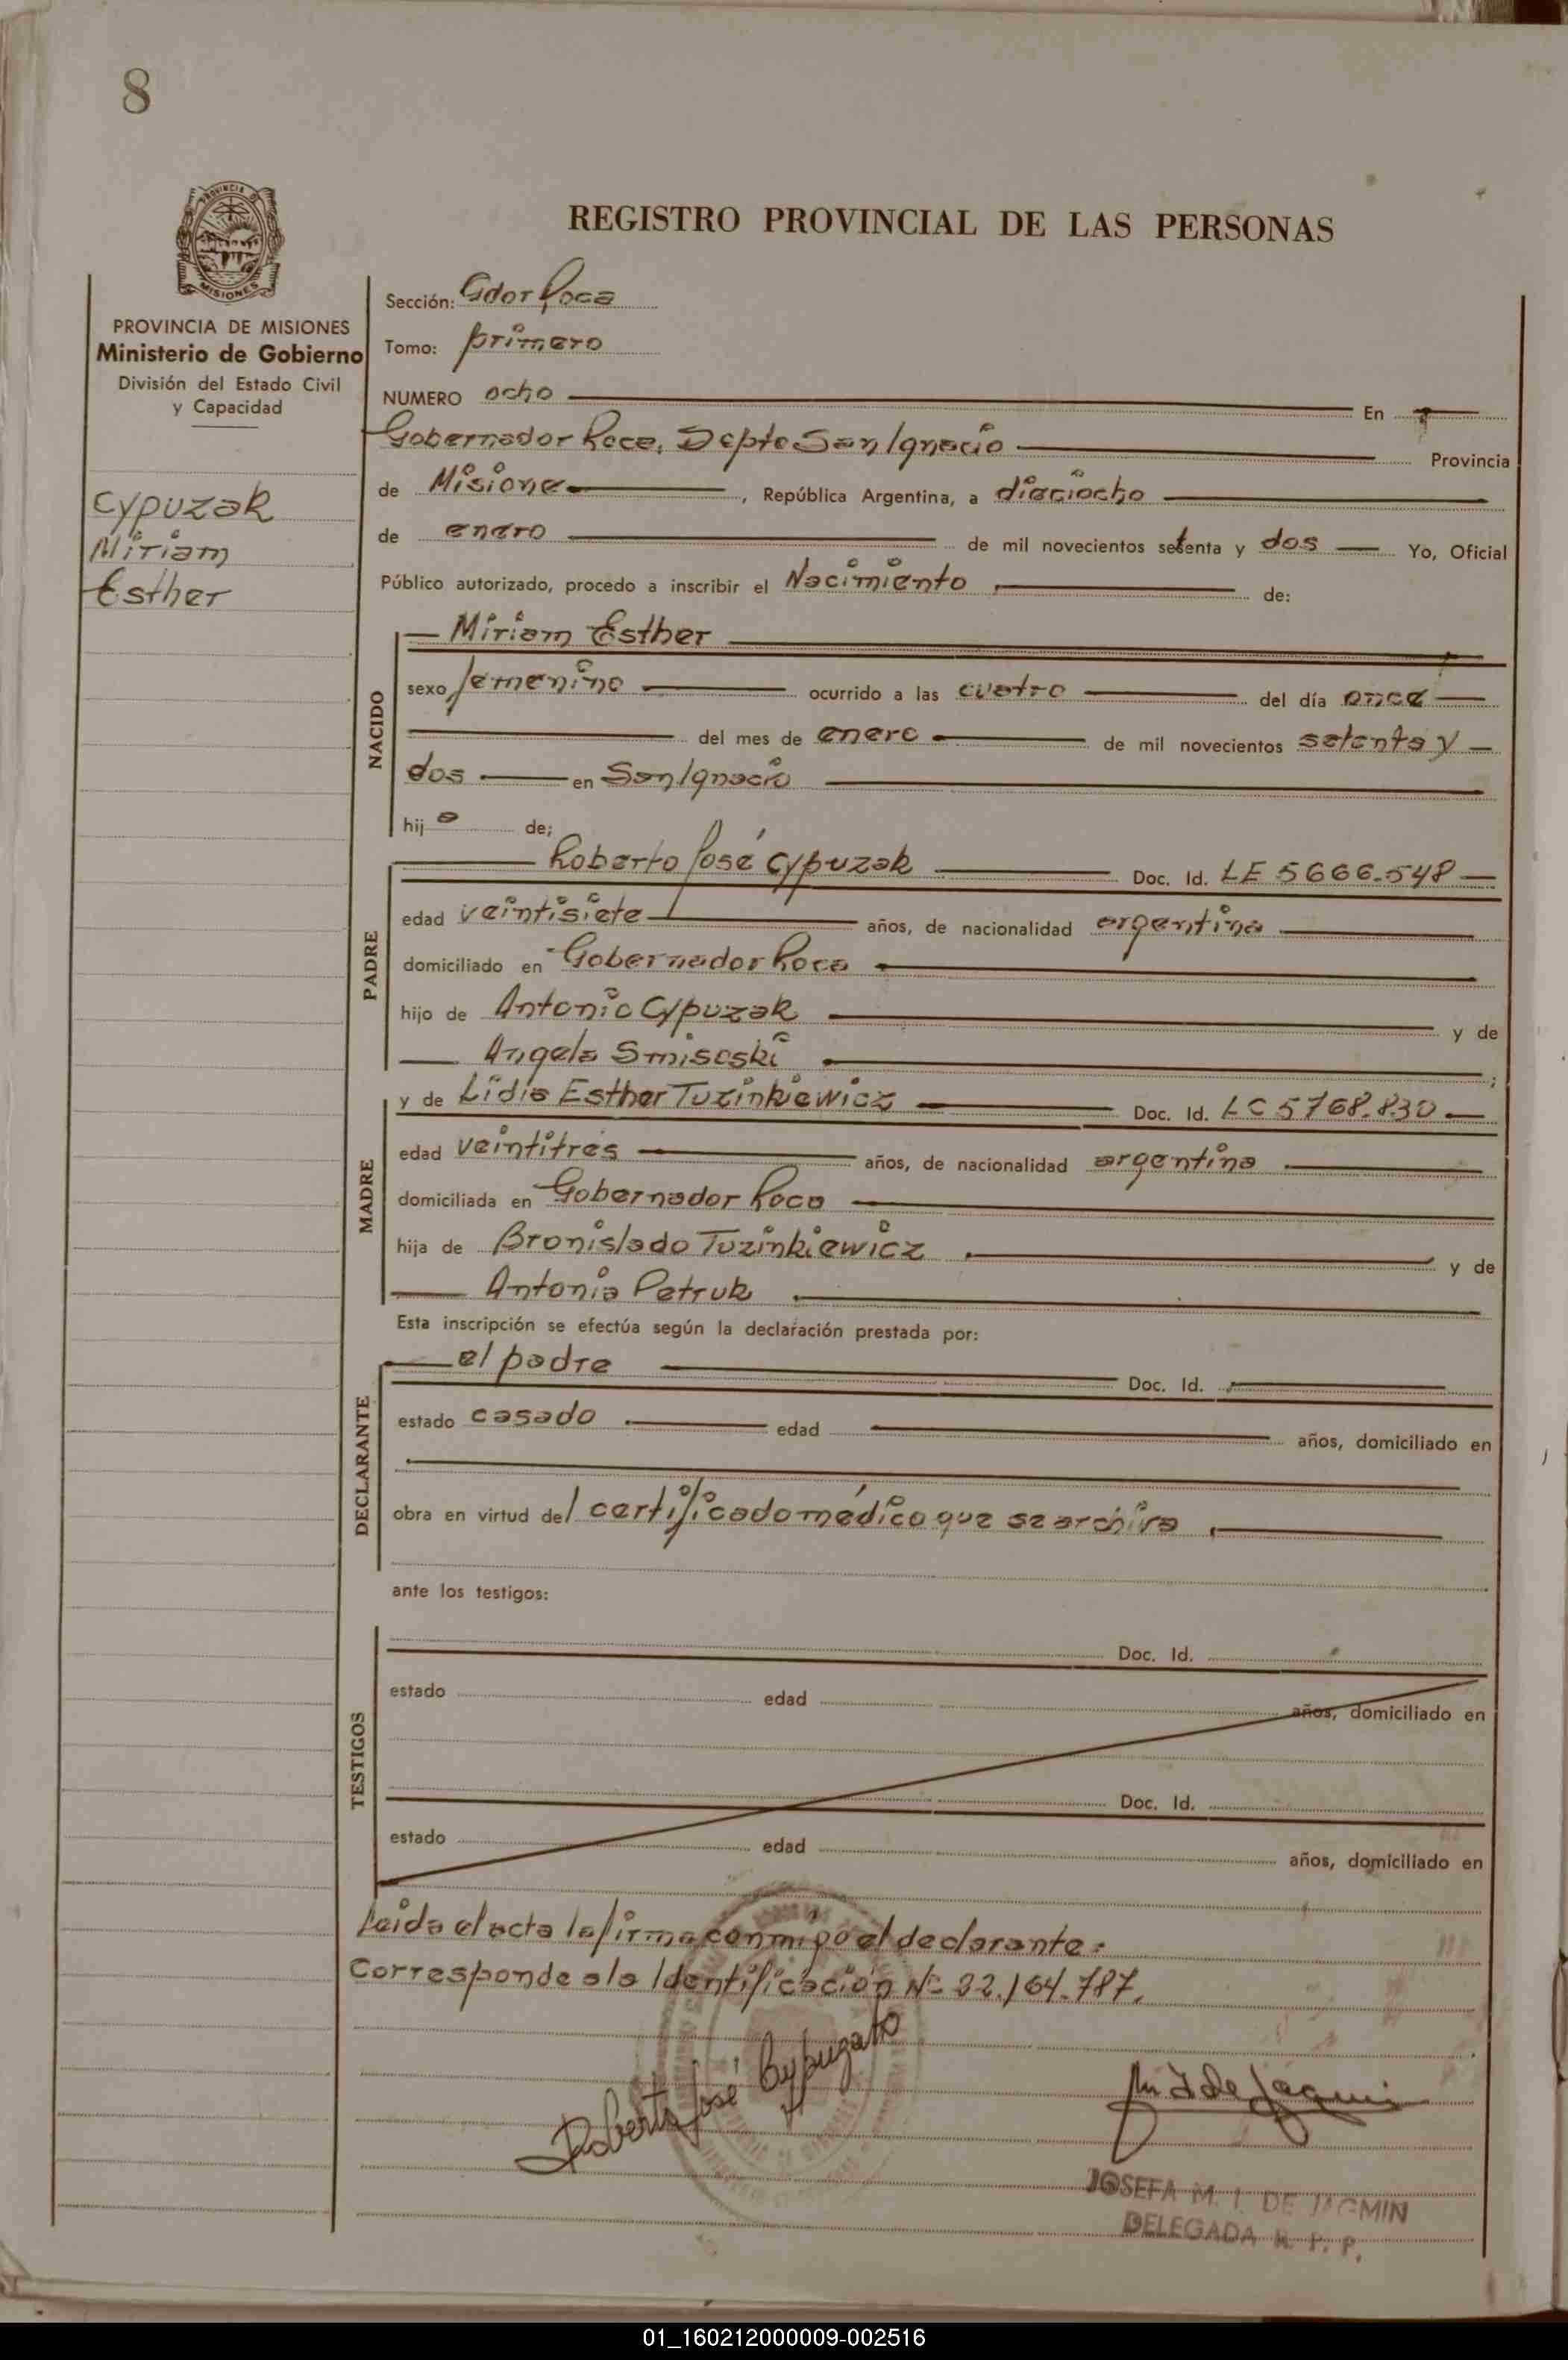 8
PROVINCIA DE MISIONES
PROVINCIA DE MISIONES
Ministerio de Gobierno
División del Estado Civil
y Capacidad
Cypuzak
Miriam
Esther
REGISTRO PROVINCIAL DE LAS PERSONAS
Sección: Gdor Roca
Tomo: primero
NUMERO ocho En
Gobernador Roca, Depto San Ignacio Provincia
de Misiones, República Argentina, a dieciocho
de enero de mil novecientos setenta y dos Yo, Oficial
Público autorizado, procedo a inscribir el Nacimiento de:
NACIDO
Miriam Esther
sexo femenino ocurrido a las cuatro del día once
del mes de enero de mil novecientos setenta y
dos en San Ignacio
hija de;
PADRE
Roberto José Cypuzak Doc. Id. LE 5666.548
edad veintisiete años, de nacionalidad argentina
domiciliado en Gobernador Roca
hijo de Antonio Cypuzak y de
Angela Smisoski ;
MADRE
y de Lidia Esther Tuzinkiewicz Doc. Id. LC 5768.830
edad veintitres años, de nacionalidad argentina
domiciliada en Gobernador Roca
hija de Bronislado Tuzinkiewicz y de
Antonia Petruk
Esta inscripción se efectúa según la declaración prestada por:
DECLARANTE
el padre Doc. Id.
estado casado edad años, domiciliado en
obra en virtud del certificado médico que se archiva
ante los testigos:
TESTIGOS
Doc. Id.
estado edad años, domiciliado en
Doc. Id.
estado edad años, domiciliado en
Leida el acta la firma conmigo el declarante.
Corresponde a la Identificación Nº 22.164.787.
Roberto José Cypuzak
M I de Jagmin
JOSEFA M. I. DE JAGMIN
DELEGADA R. P. P.
01_160212000009-002516